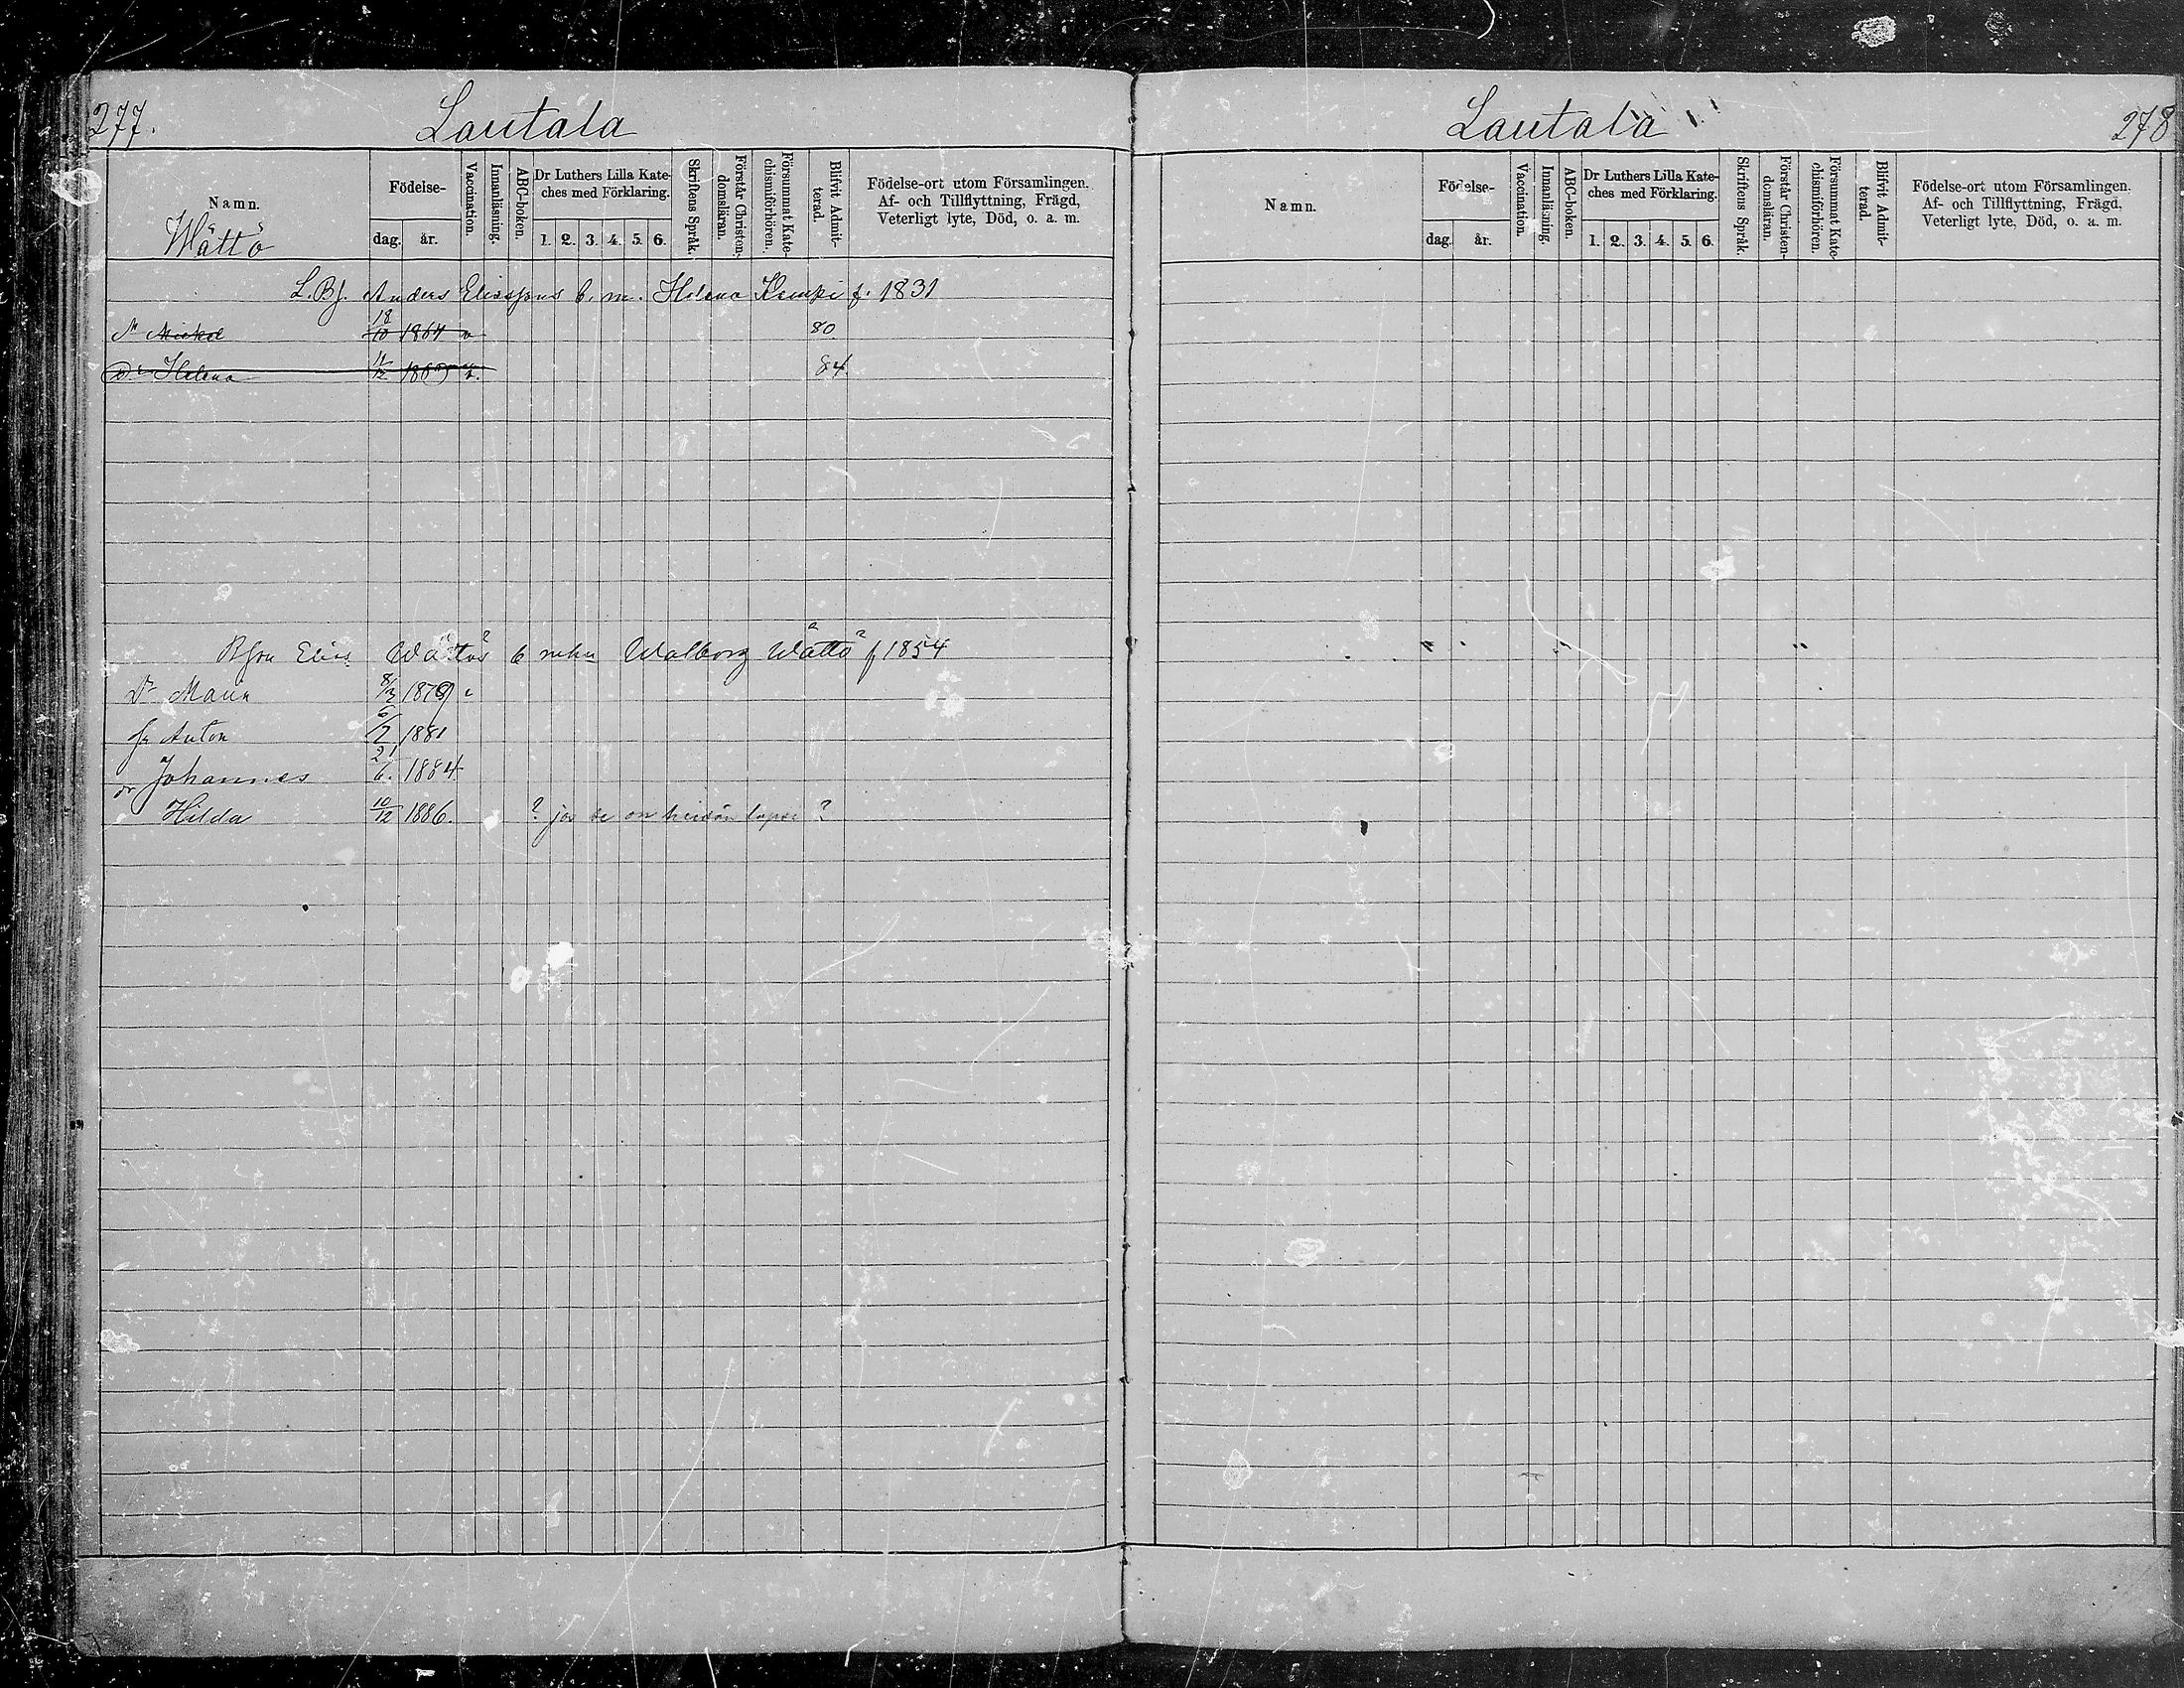 277. Lautala
Namn. Födelse- dag. år. Vaccination. Innanläsning. ABC-boken. Dr Luthers Lilla Kateches med Förklaring. 1. 2. 3. 4. 5. 6. Skriftens Språk. Förstår Christendomsläran. Försummat Katechismiförhören. Blifvit Admitterad. Födelse-ort utom Församlingen. Af- och Tillflyttning, Frägd, Veterligt lyte, Död, o. a. m.
Wättö
L. Bf. Anders Eliassons b. m. Helena Kempi f. 1831
18/10 1864 v 80.
Dr Helena 11/12 84
Elias Wättös Walborg Wättö f 1854
Dr 8/3 1879
Anton 6/7 1881
Johannes 21/6. 1884
dr Hilda 10/12 1886. ? jos se on heidän lapsi ?
Lautala 278
Namn. Födelse- dag. år. Vaccination. Innanläsning. ABC-boken. Dr Luthers Lilla Kateches med Förklaring. 1. 2. 3. 4. 5. 6. Skriftens Språk. Förstår Christendomsläran. Försummat Katechismiförhören. Blifvit Admitterad. Födelse-ort utom Församlingen. Af- och Tillflyttning, Frägd, Veterligt lyte, Död, o. a. m.